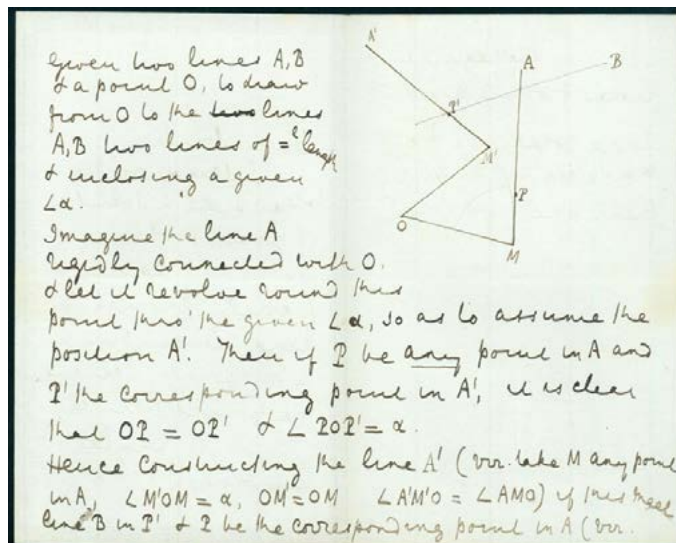 Given two lines A, B
& a point O, to draw
from O to the two lines
A, B two lines of =l length
& inclosing a given
∠α.
Imagine the line A
rigidly connected with O.
& let it revolve round this
point thro' the given ∠α, so as to assume the
position A'. Then if P be any point in A and
P' the corresponding point in A', it is clear
that OP = OP' & ∠POP' = α.
Hence constructing the line A' (viz. take M any point
in A, ∠M'OM = α, OM' = OM ∠A'M'O = ∠AMO) if this meet
line B in P' & P be the corresponding point in A (viz.
A'
A
B
P'
M'
P
O
M